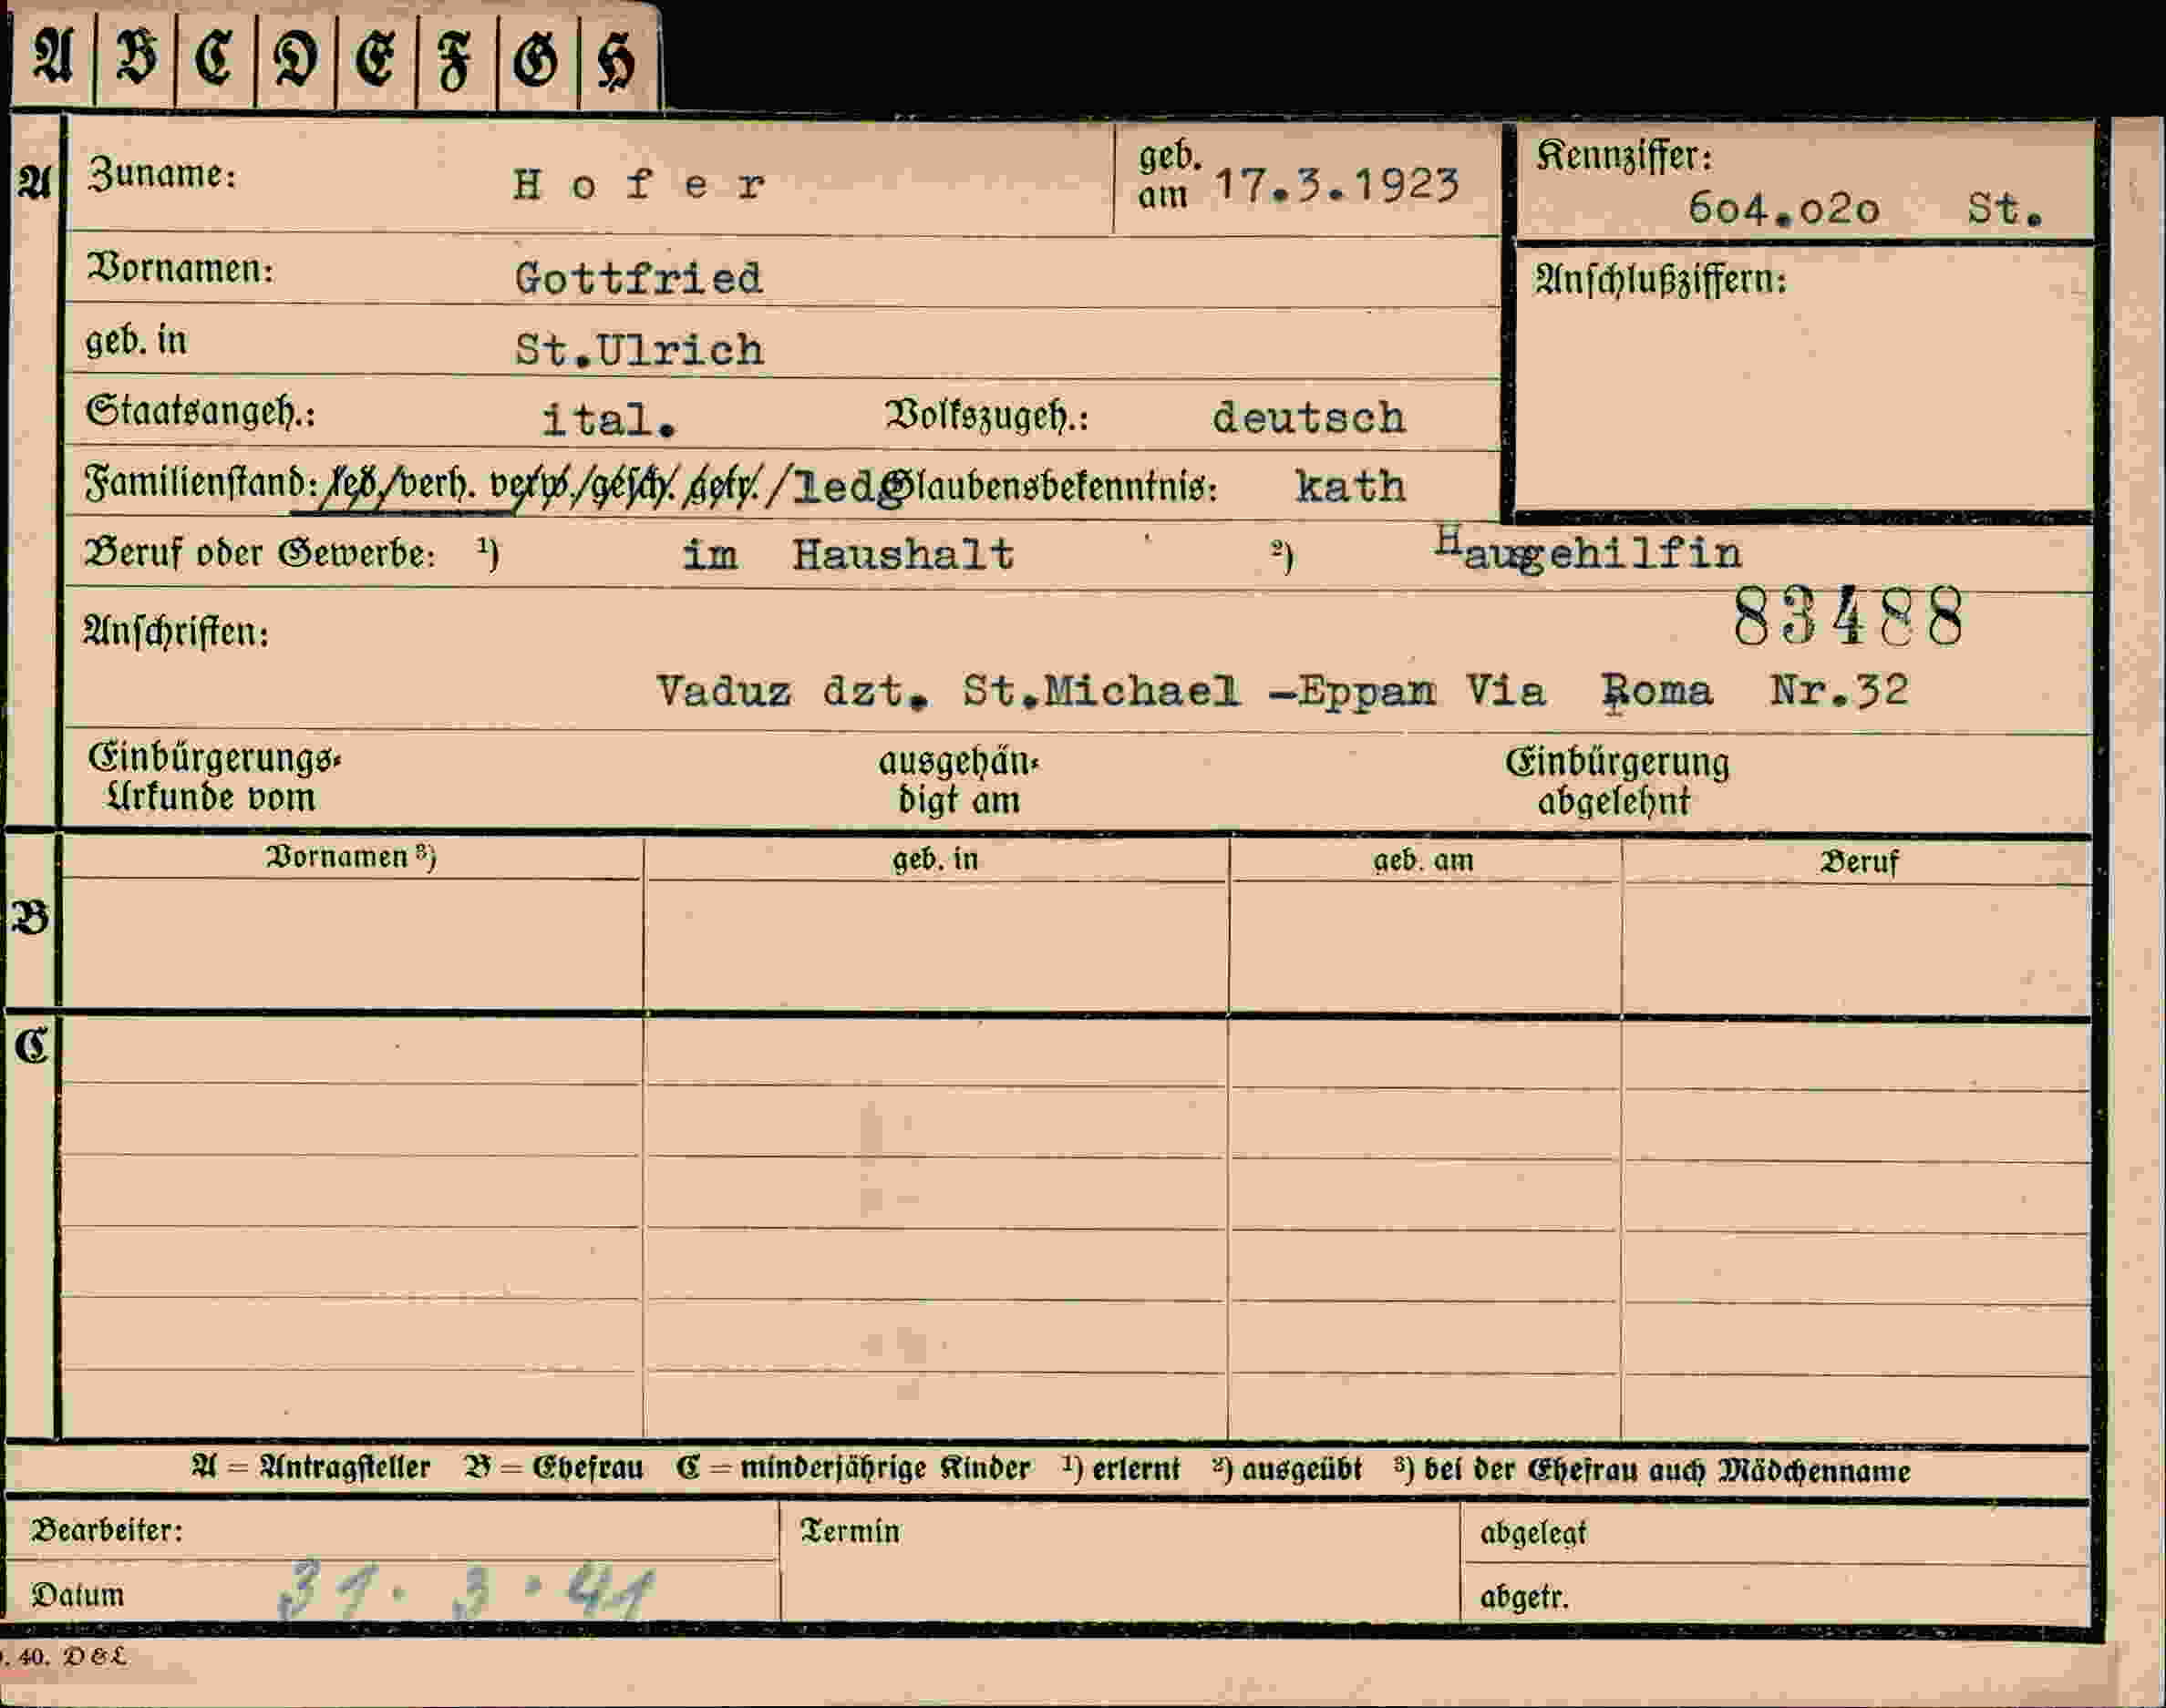 A B C D E F G H
A Zuname: Hofer geb. am 17.3.1923 Kennziffer: 604.020 St.
Vornamen: Gottfried Anschlußziffern:
geb. in St.Ulrich
Staatsangeh.: ital. Volkszugeh.: deutsch
Familienstand: led./verh. verw./gesch. getr./led Glaubensbekenntnis: kath
Beruf oder Gewerbe: ¹) im Haushalt ²) Haugehilfin
83488
Anschriften:
Vaduz dzt. St.Michael -Eppan Via Roma Nr.32
Einbürgerungs- Urkunde vom ausgehän- digt am Einbürgerung abgelehnt
Vornamen ³) geb. in geb. am Beruf
B
C
A = Antragsteller B = Ehefrau C = minderjährige Kinder ¹) erlernt ²) ausgeübt ³) bei der Ehefrau auch Mädchenname
Bearbeiter: Termin abgelegt
Datum 31. 3. 41 abgetr.
. 40. D & L